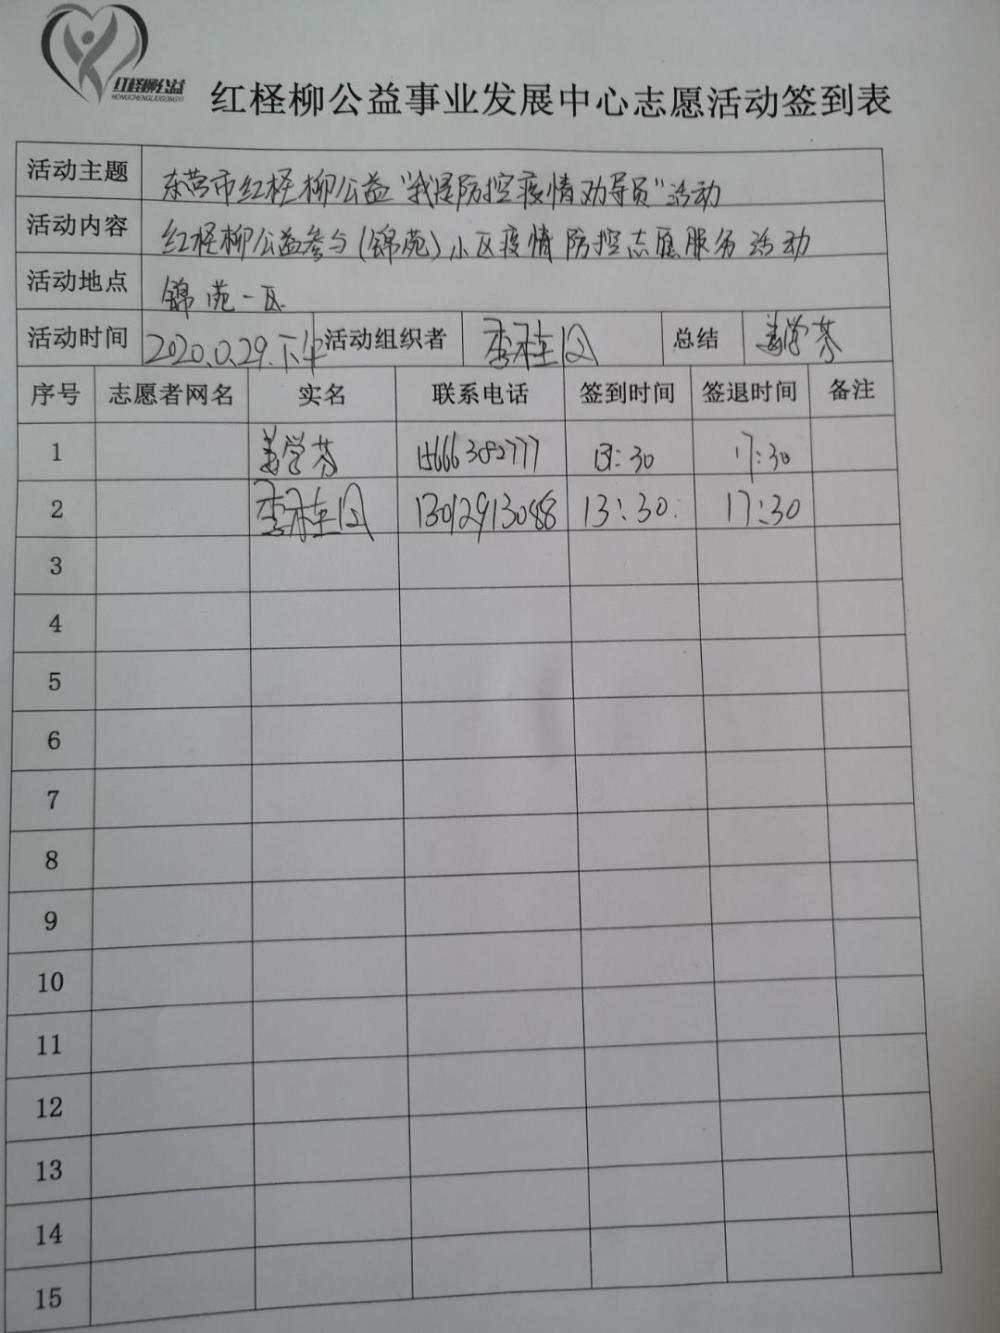 红柽柳公益
HONGCHENGLIUGONGYI
红柽柳公益事业发展中心志愿活动签到表
活动主题 东营市红柽柳公益“我是防控疫情劝导员”活动
活动内容 红柽柳公益参与(锦苑)小区疫情防控志愿服务活动
活动地点 锦苑一区
活动时间 2020.0.29.下午 活动组织者 李桂 总结 姜学芬
序号 志愿者网名 实名 联系电话 签到时间 签退时间 备注
1 姜学芬 15666382777 13:30 17:30
2 李桂 13012913088 13:30 17:30
3
4
5
6
7
8
9
10
11
12
13
14
15